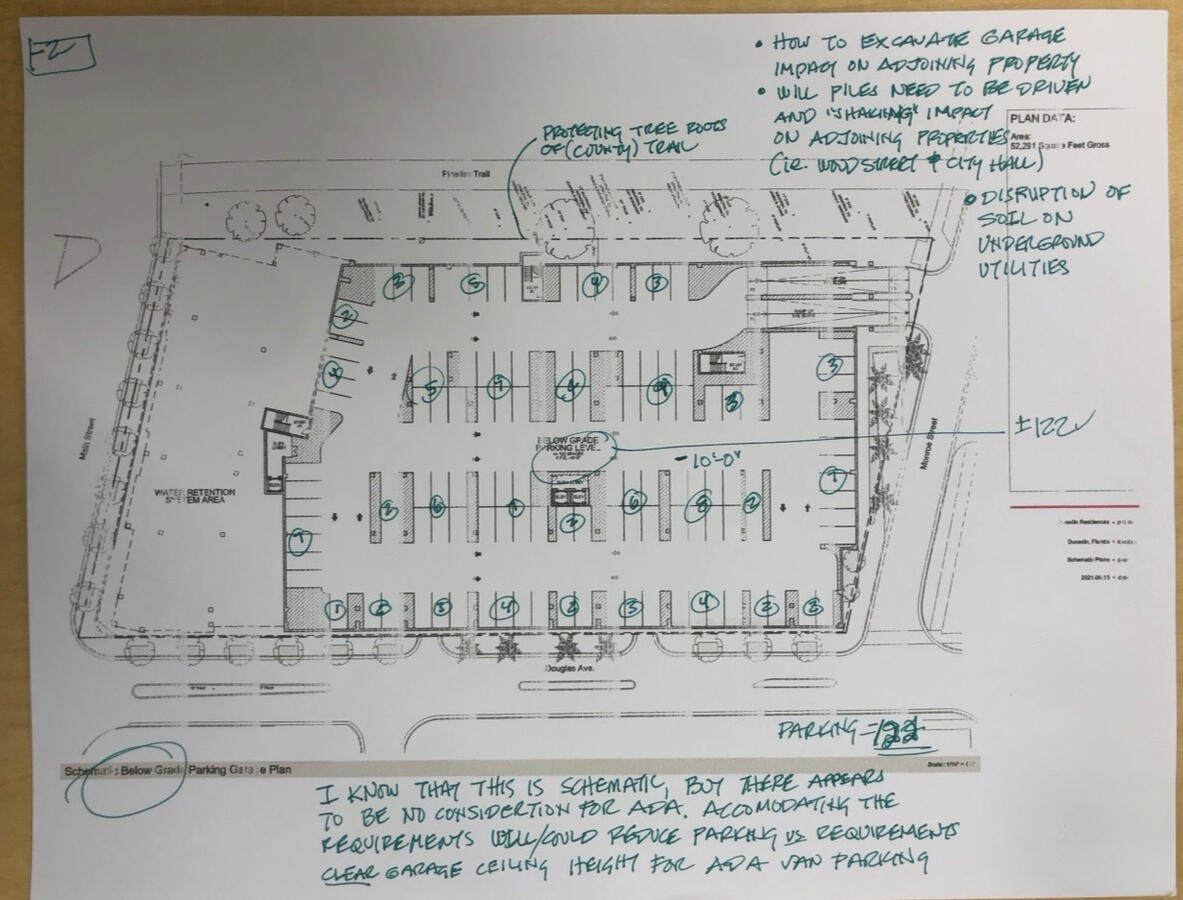 -2
• HOW TO EXCAVATE GARAGE
IMPACT ON ADJOINING PROPERTY
• WILL PILES NEED TO BE DRIVEN
AND "SHAKING" IMPACT
ON ADJOINING PROPERTIES
(IE. WOOD STREET & CITY HALL)
• DISRUPTION OF
SOIL ON
UNDERGROUND
UTILITIES
PLAN DATA:
Area:
52,291 Square Feet Gross
PROTECTING TREE ROOTS
OF (COUNTY) TRAIL
Pinellas Trail
D
3
5
4
3
2
4
5
9
9
3
3
Main Street
Monroe Street
BELOW GRADE
PARKING LEVEL
-10'-0"
±122
WATER RETENTION
SYSTEM AREA
6
6
8
2
1
4
3
4
2
Douglas Ave.
Dunedin, Florida
Schematic Plans
2021.06.15
PARKING =
Schematic Below Grade Parking Garage Plan
I KNOW THAT THIS IS SCHEMATIC, BUT THERE APPEARS
TO BE NO CONSIDERTION FOR ADA. ACCOMODATING THE
REQUIREMENTS WILL/COULD REDUCE PARKING VS REQUIREMENTS
CLEAR GARAGE CEILING HEIGHT FOR ADA VAN PARKING